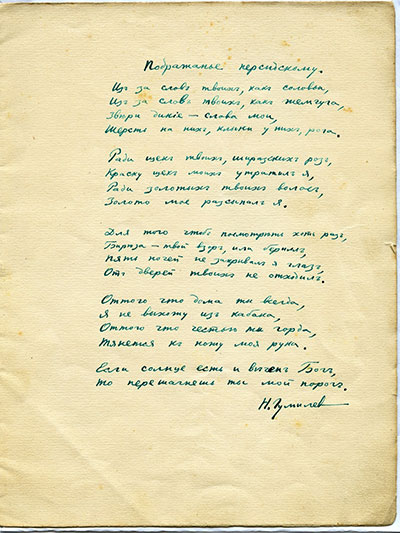 Подражанье персидскому.
Изъ за словъ твоихъ, какъ соловьи,
Изъ за словъ твоихъ, какъ жемчуга,
Звѣри дикіе — слова мои,
Шерсть на нихъ, клыки у нихъ, рога.
Ради щекъ твоихъ, ширазскихъ розъ,
Краску щекъ моихъ утратилъ я,
Ради золотыхъ твоихъ волосъ,
Золото мое разсыпалъ я.
Для того чтобъ посмотрѣть хоть разъ,
Бирюза — твой взоръ, или бериллъ,
Пять ночей не закрывалъ я глазъ,
Отъ дверей твоихъ не отходилъ.
Оттого что дома ты всегда,
Я не выхожу изъ кабака,
Оттого что честью ты горда,
Тянется къ ножу моя рука.
Если солнце есть и вѣченъ Богъ,
То перешагнешь ты мой порогъ.
Н. Гумилев